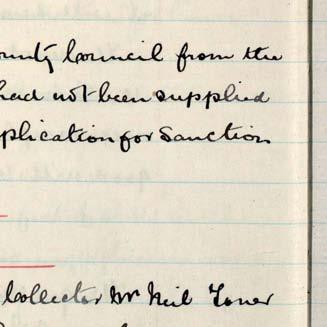 ounty Council from the
had not been supplied
plication for Sanction
Collector Mr Neil Toner